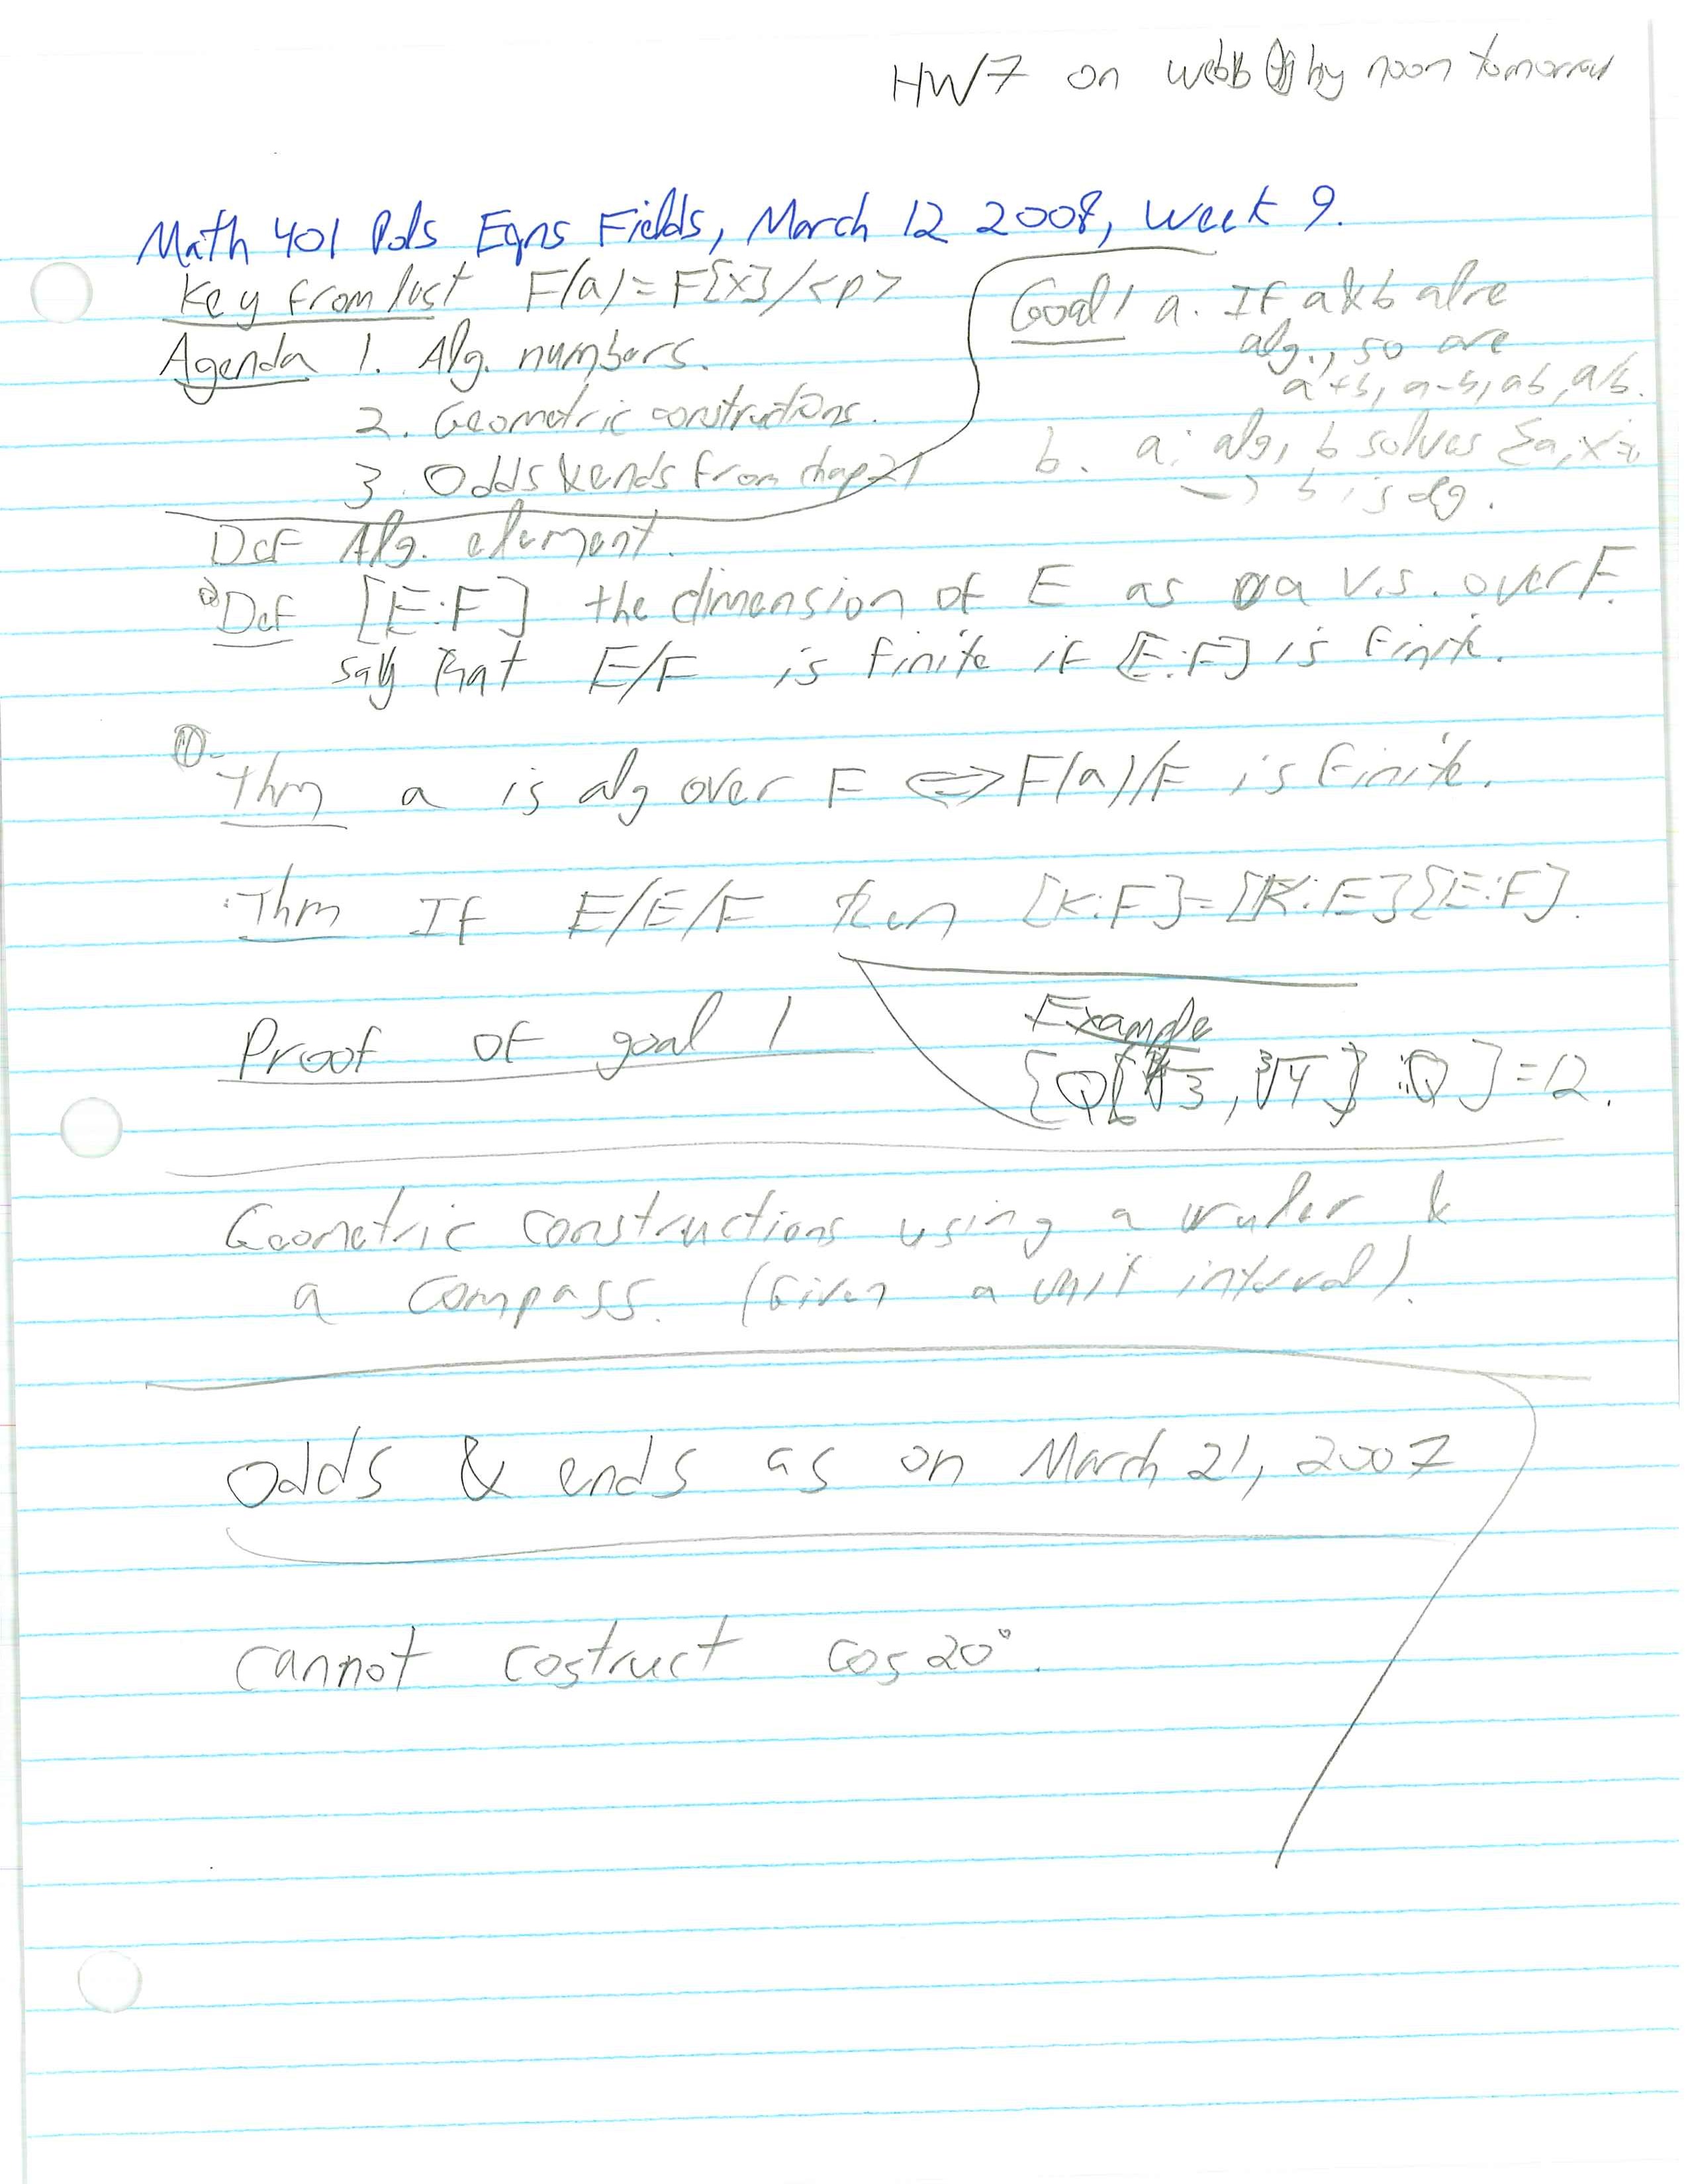 HW7 on web by noon tomorrow
Math 401 Pols Eqns Fields, March 12 2008, Week 9.
Key from last F(a)=F[x]/<p>
Agenda 1. Alg. numbers.
2. Geometric constructions.
3. Odds & ends from chap 21
Goal 1 a. If a & b are
alg., so are
a+b, a-b, ab, a/b.
b. aᵢ alg, b solves Σaᵢxⁱ=0
→ b is alg.
Def Alg. element.
Def [E:F] the dimension of E as a v.s. over F.
say that E/F is finite if [E:F] is finite.
①. Thm a is alg over F ⇔ F(a)/F is finite.
Thm If E/E/F then [K:F]=[K:E][E:F].
Proof of goal 1
Example
[Q[∜3, ∛4]:Q]=12.
Geometric constructions using a ruler &
a compass. (Given a unit interval).
Odds & ends as on March 21, 2007
cannot costruct cos 20°.